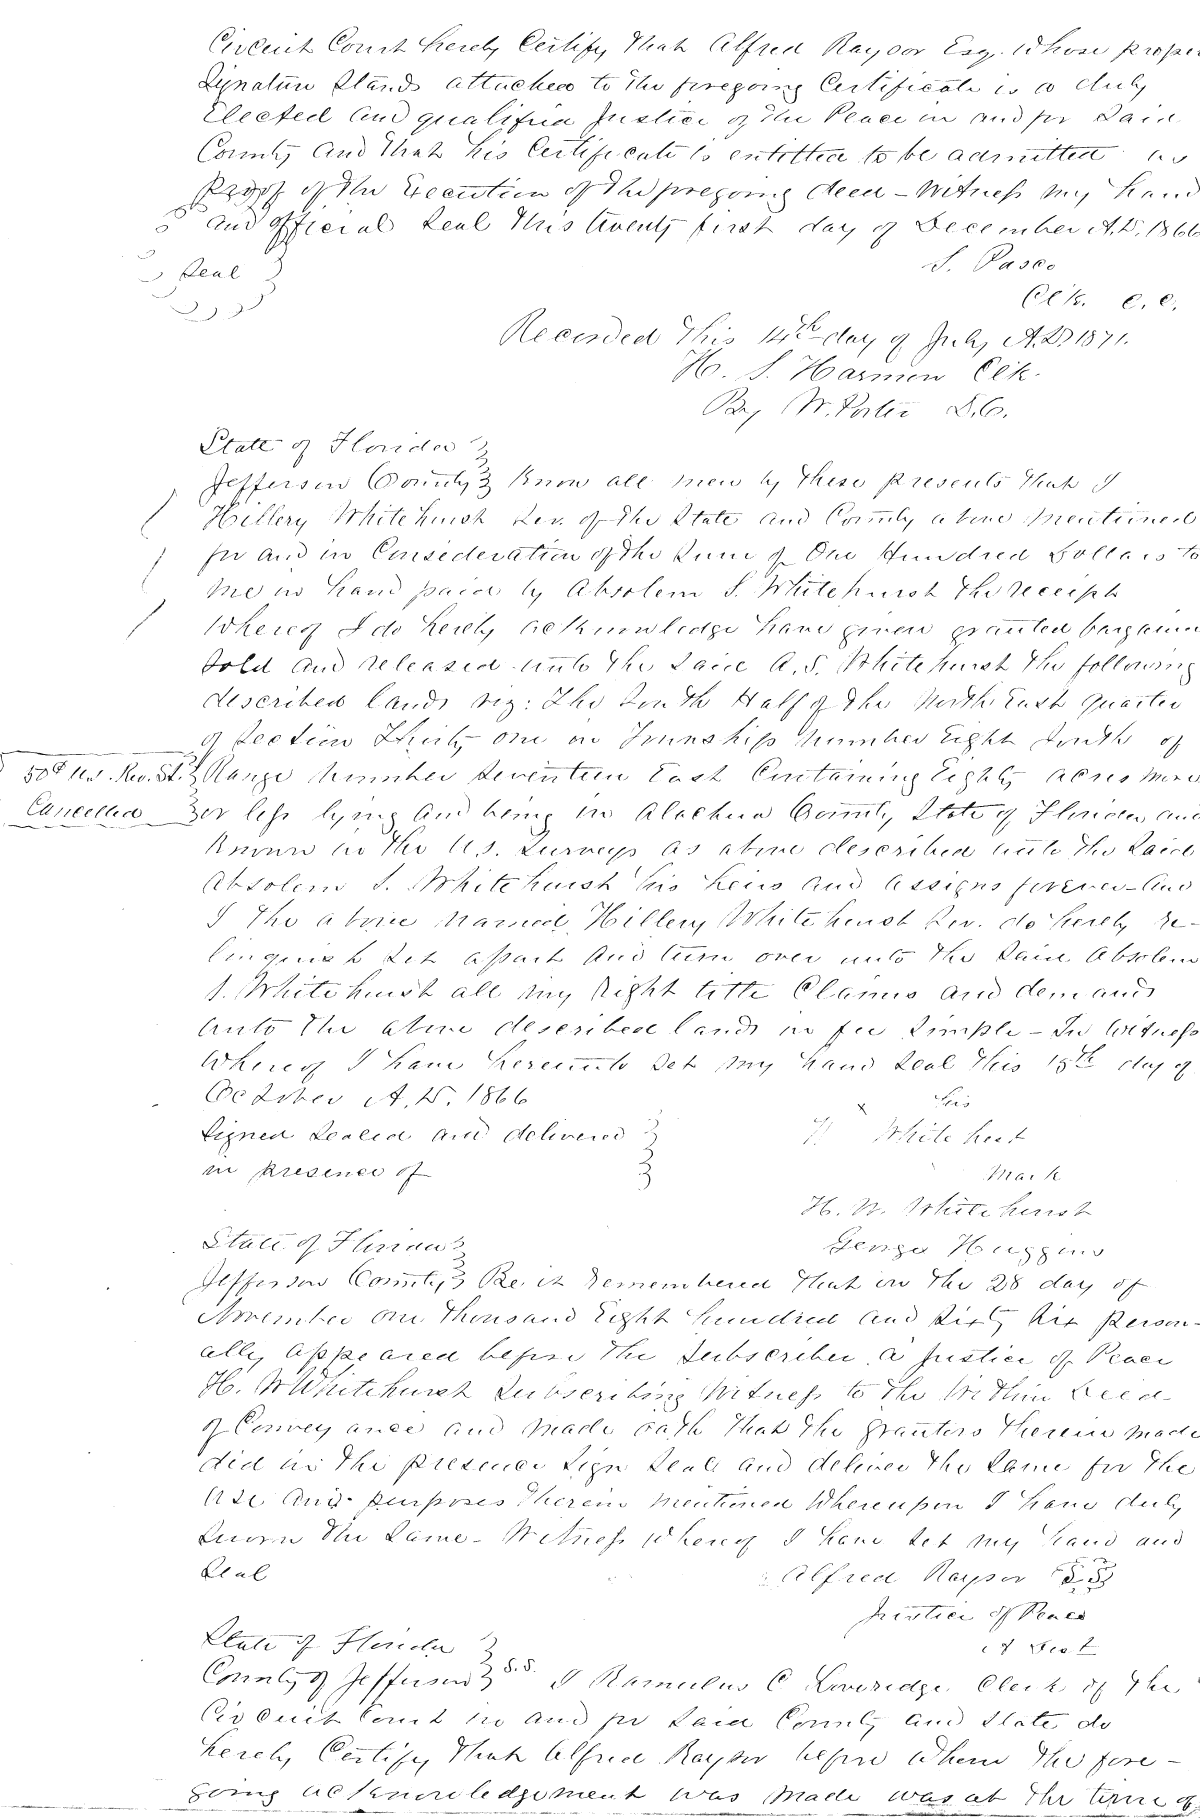 Circuit Court hereby Certify that Alfred Raysor Esq. whose proper
Signature Stands attached to the foregoing Certificate is a duly
Elected and qualified Justice of the Peace in and for Said
County and that his Certificate is entitled to be admitted as
Proof of the Execution of the foregoing deed - Witness my hand
and official Seal this twenty first day of December A.D. 1866
Seal
S. Pasco
Clk. C.C.
Recorded this 14th day of July A.D. 1871.
H. S. Harmon Clk.
By W. Porter D.C.
State of Florida
Jefferson County Know all men by these presents that I
Hillery Whitehurst Sen. of the State and County above mentioned
for and in Consideration of the Sum of One Hundred Dollars to
me in hand paid by Absolem S. Whitehurst the receipt
whereof I do hereby acknowledge have given granted bargained
Sold and released unto the Said A. S. Whitehurst the following
described lands viz: The South Half of the North East quarter
of Section Thirty one in Township number Eight South of
50c U.S. Rev. St. Range number Seventeen East Containing Eighty acres more
Cancelled or less lying and being in Alachua County State of Florida and
Known in the U.S. Surveys as above described unto the Said
Absolem S. Whitehurst his heirs and assigns forever - And
I the above named Hillery Whitehurst Sen. do hereby re-
linquish Set apart and turn over unto the Said Absolem
S. Whitehurst all my Right title Claims and demands
unto the above described lands in fee Simple - In Witness
whereof I have hereunto Set my hand Seal this 15th day of
October A.D. 1866
his
Signed Sealed and delivered
H x Whitehurst
in presence of
mark
H. W. Whitehurst
George Huggins
State of Florida
Jefferson County Be it Remembered that on the 28 day of
November one thousand Eight hundred and Sixty Six person-
ally appeared before the Subscriber a Justice of Peace
H. W Whitehurst Subscribing Witness to the Within Deed
of Conveyance and made oath that the grantors therein made
did in the presence Sign Seal and deliver the Same for the
use and purposes therein mentioned Whereupon I have duly
Sworn the Same - Witness whereof I have Set my hand and
Seal
Alfred Raysor
Justice of Peace
State of Florida
County of Jefferson S.S. I Ramulus C Loveridge Clerk of the
Circuit Court in and for Said County and State do
hereby Certify that Alfred Raysor before whom the fore-
going acknowledgement was made was at the time of